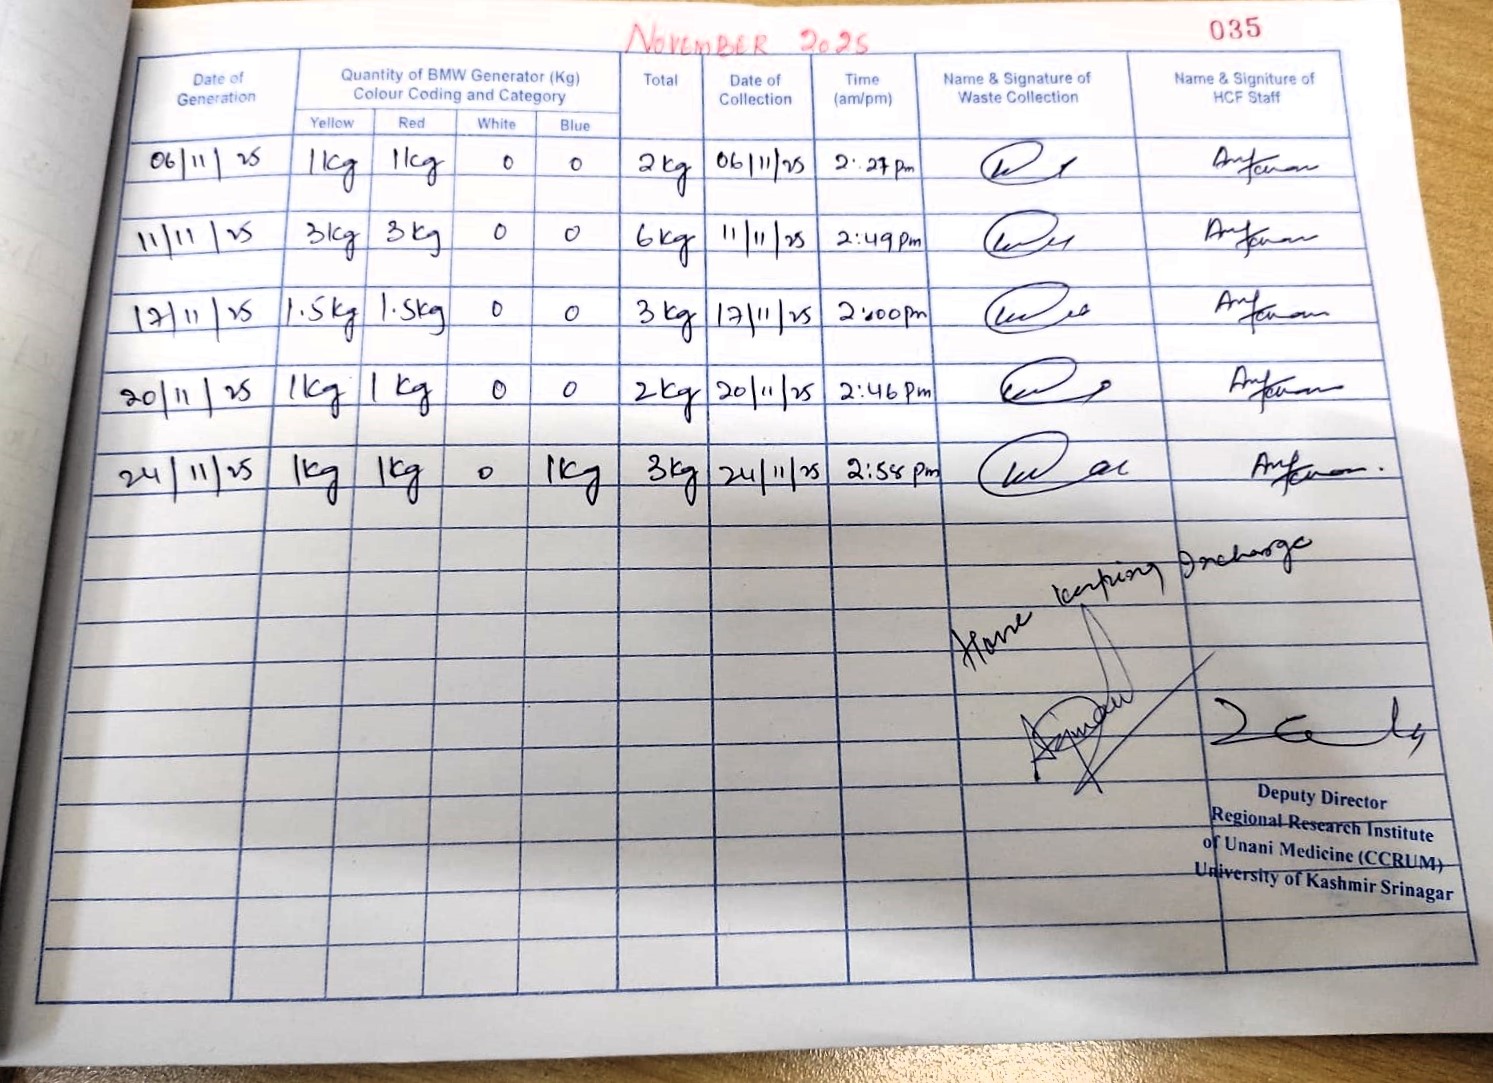 November 2025
035
Date of Generation
Quantity of BMW Generator (Kg)
Colour Coding and Category
Yellow Red White Blue
Total
Date of Collection
Time (am/pm)
Name & Signature of Waste Collection
Name & Signiture of HCF Staff
06/11/25 1kg 1kg 0 0 2kg 06/11/25 2:27pm
11/11/25 3kg 3kg 0 0 6kg 11/11/25 2:49pm
17/11/25 1.5kg 1.5kg 0 0 3kg 17/11/25 2:00pm
20/11/25 1kg 1kg 0 0 2kg 20/11/25 2:46pm
24/11/25 1kg 1kg 0 1kg 3kg 24/11/25 2:58pm
Incharge
Deputy Director
Regional Research Institute
of Unani Medicine (CCRUM)
University of Kashmir Srinagar